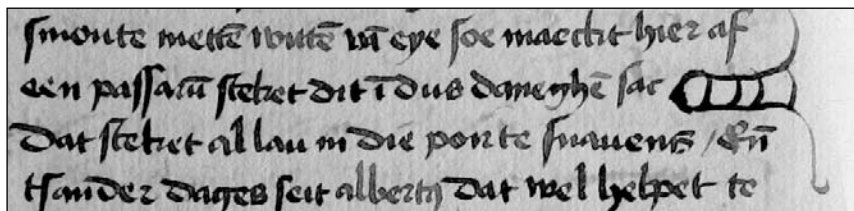 smoute mettē wittē vā eye soe maeckt hier af
een passariū steket dit ī dus daneghē sac
Dat steket al lau in die porte snauens / Eñ
tsander dages seit albertꝰ dat wel helpet te